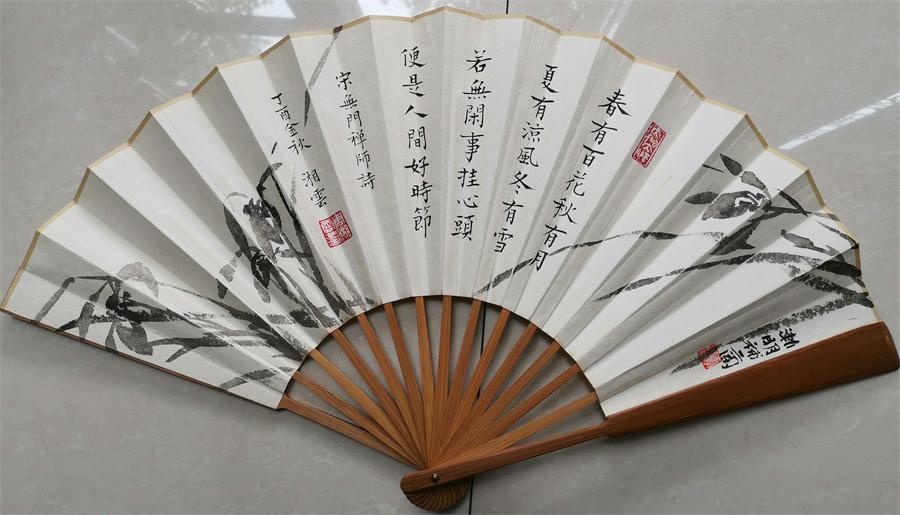 春有百花秋有月
夏有涼風冬有雪
若無閑事挂心頭
便是人間好時節
宋無門禅師詩
丁酉金秋 湘雲